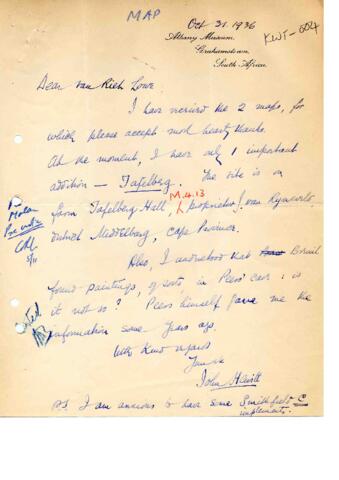 MAP
Oct 31. 1936
KWT-604
Albany Museum,
Grahamstown,
South Africa.
Dear Van Riet Lowe
I have received the 2 maps, for
which please accept most hearty thanks.
At the moment, I have only 1 important
addition — Tafelberg. The site is on
M.4.13
farm Tafelberg Hall, (proprietor J. van
District Middelburg, Cape Province.
Also, I understand that
found paintings, of sorts, in Peers' cave: is
it not so? Peers himself gave me the
information some years ago.
With kind regards
Yours
John Hewitt
5/11
Noted
P.S. I am anxious to have some Smithfield C
implements.